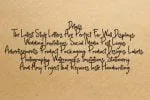 Details
The Latest Style Letters Are Perfect For Wall Displays
Wedding Invitations, Social Media Post Logos
Advertisements, Product Packaging, Product Designs, Labels
Photography, Watermark, Invitation, Stationery
And Any Project that Requires taste Handwriting